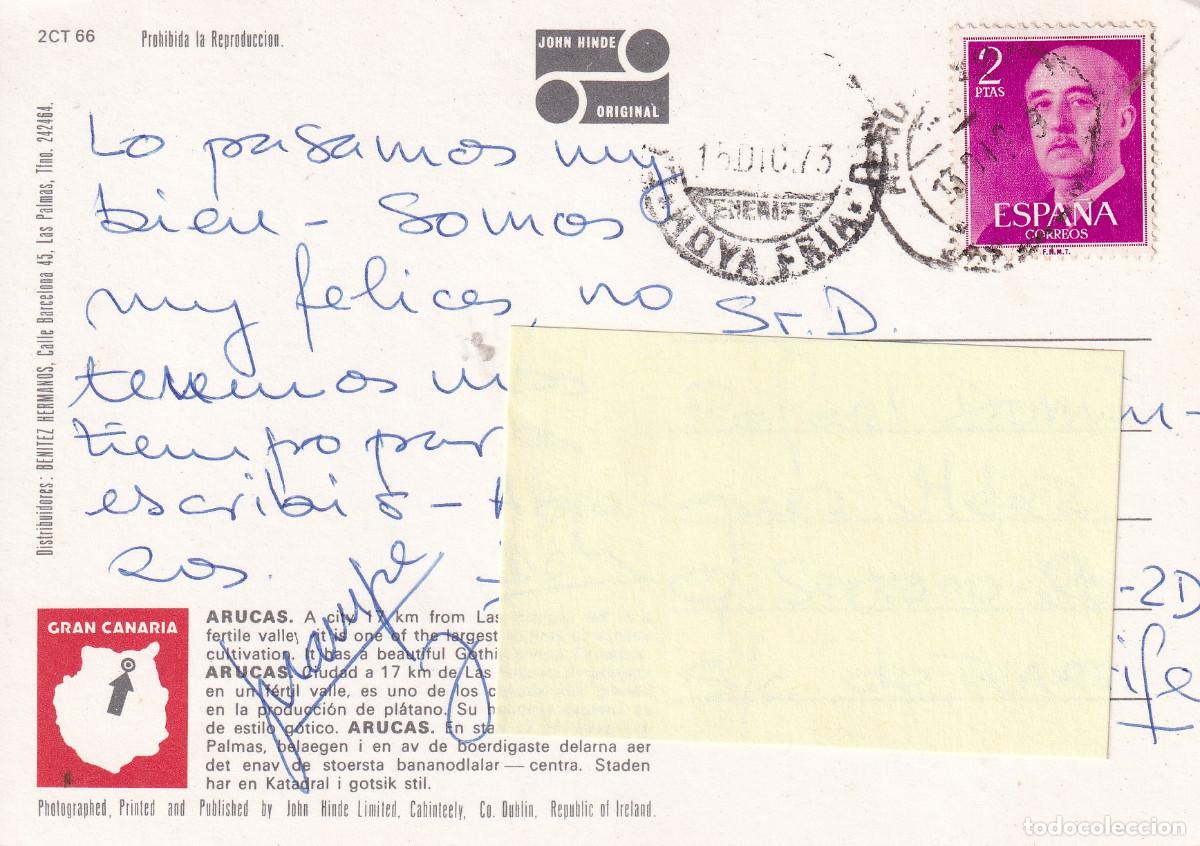 2CT 66
Prohibida la Reproduccion.
JOHN HINDE
ORIGINAL
2
PTAS
ESPAÑA
CORREOS
F.N.M.T.
15 DIC. 73
TENERIFE
HOYA FRIA
Distribuidores: BENITEZ HERMANOS, Calle Barcelona 45, Las Palmas, Tfno. 242464.
Lo pasamos my
bien - Somos
my felices, no
tenemos m
tiempo par
escribiros -
zos.
Sr. D.
-2D
ife
GRAN CANARIA
ARUCAS. A city 17 km from Las
fertile valley, it is one of the largest
cultivation. It has a beautiful Gothi
ARUCAS. Ciudad a 17 km de Las
en un fértil valle, es uno de los c
en la producción de plátano. Su
de estilo gótico. ARUCAS. En sta
Palmas, belaegen i en av de boerdigaste delarna aer
det enav de stoersta bananodlalar — centra. Staden
har en Katadral i gotsik stil.
Photographed, Printed and Published by John Hinde Limited, Cabinteely, Co. Dublin, Republic of Ireland.
todocoleccion